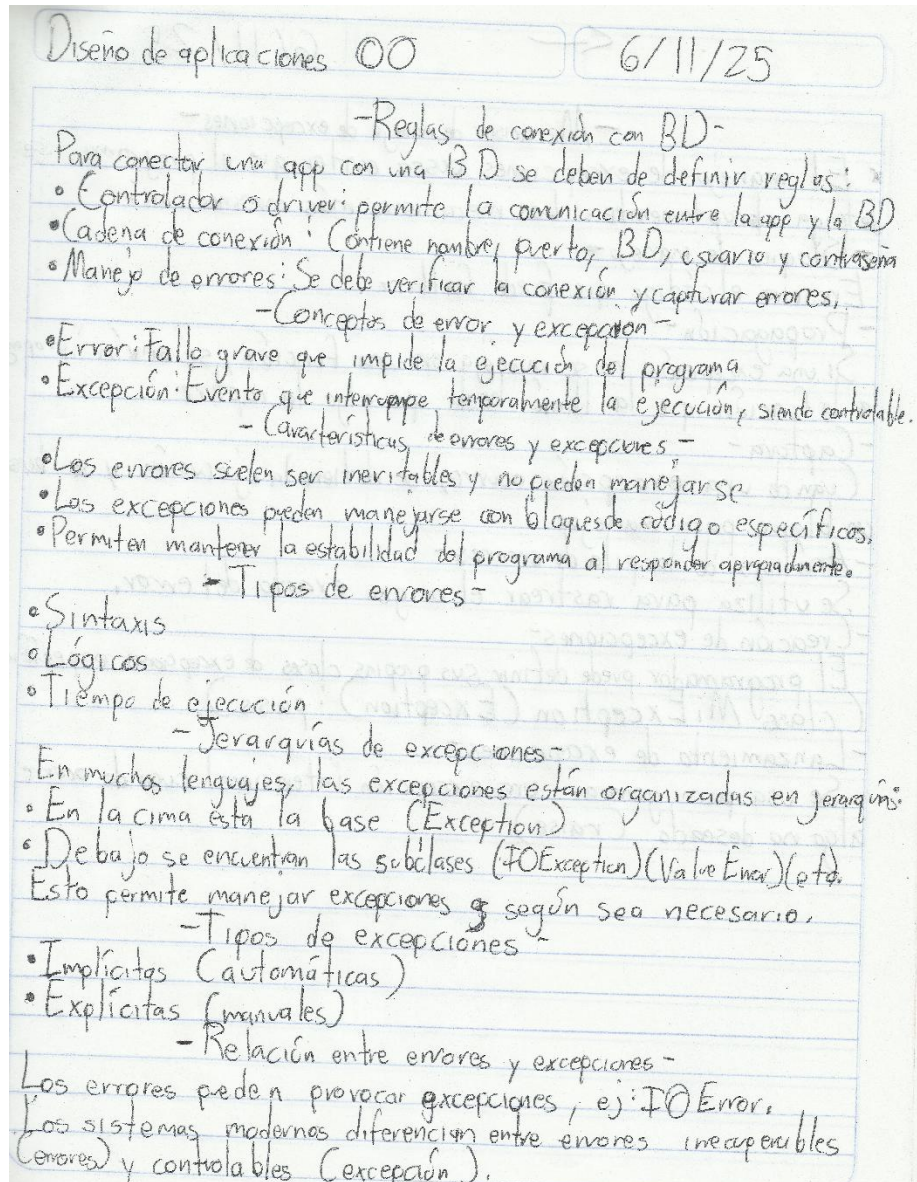 Diseño de aplicaciones OO 6/11/25
-Reglas de conexión con BD-
Para conectar una app con una BD se deben de definir reglas:
• Controlador o driver: permite la comunicación entre la app y la BD
• Cadena de conexión: Contiene nombre, puerto, BD, usuario y contraseña
• Manejo de errores: Se debe verificar la conexión y capturar errores.
-Conceptos de error y excepción-
• Error: Fallo grave que impide la ejecución del programa
• Excepción: Evento que interrumpe temporalmente la ejecución, siendo controlable.
- Características de errores y excepciones -
• Los errores suelen ser inevitables y no pueden manejarse
• Las excepciones pueden manejarse con bloques de código específicos.
• Permiten mantener la estabilidad del programa al responder apropiadamente.
- Tipos de errores -
• Sintaxis
• Lógicos
• Tiempo de ejecución
- Jerarquías de excepciones -
En muchos lenguajes, las excepciones están organizadas en jerarquías:
• En la cima esta la base (Exception)
• Debajo se encuentran las subclases (IOException)(ValueError)(etc).
Esto permite manejar excepciones según sea necesario.
-Tipos de excepciones-
• Implícitas (automáticas)
• Explícitas (manuales)
- Relación entre errores y excepciones -
Los errores pueden provocar excepciones, ej: IOError.
Los sistemas modernos diferencian entre errores irrecuperables
(errores) y controlables (excepción).